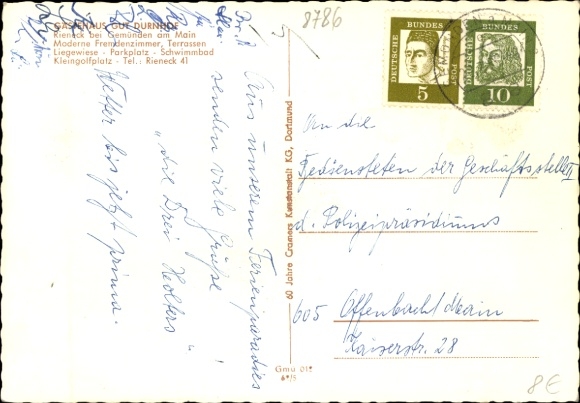 GÄSTEHAUS GUT DÜRNHOF
Rieneck bei Gemünden am Main
Moderne Fremdenzimmer, Terrassen
Liegewiese - Parkplatz - Schwimmbad
Kleingolfplatz - Tel.: Rieneck 41
Aus unserem Ferienparadies
senden viele Grüße
"die Drei Holters"
Wetter bis jetzt prima.
60 Jahre Cramers Kunstanstalt KG, Dortmund
Gmu 012
6⁰/5
8786
DEUTSCHE
BUNDES
POST
5
DEUTSCHE
BUNDES
POST
10
An die
der Geschäftsstelle II
d. Polizeipräsidiums
605 Offenbach/Main
Kaiserstr. 28
8€